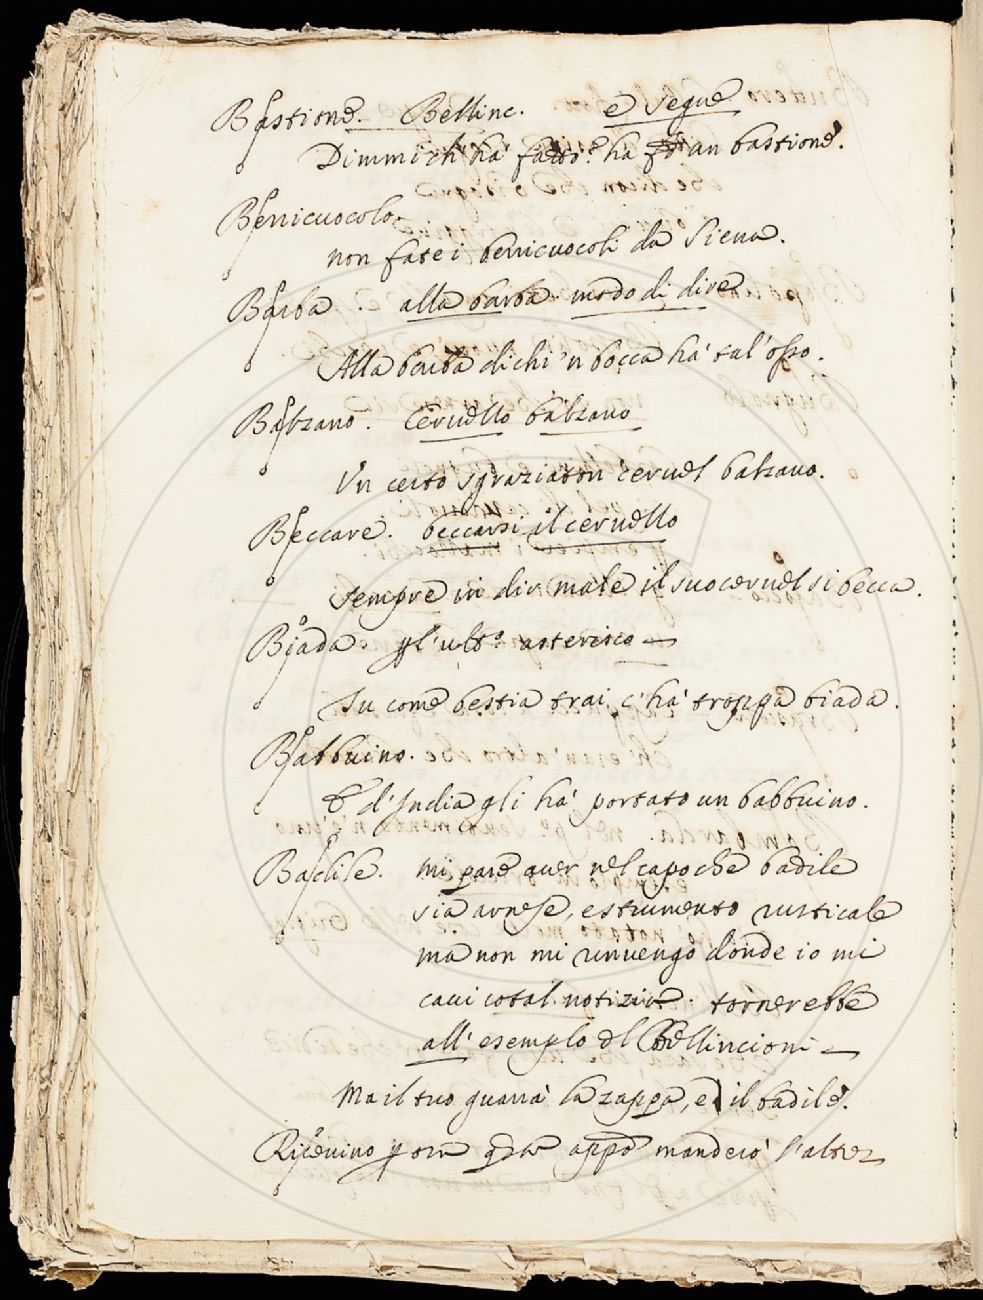 Bastione. Bellinc. e segue
Dimmi ch' ha' fatto? ha' fatt'an bastione.
Berricuocolo.
non fate i berricuocoli da Siena.
Barba. alla barba. modo di dire
Alla barba di chi 'n bocca ha' tal' osso.
Balzano. Cervello balzano
Un certo sgraziaton cervel balzano.
Beccare. beccarsi il cervello
Sempre in dir male il suo cervel si becca.
Biada. p l'ult.o asterisco —
Tu come bestia trai, c'ha' troppa biada.
Babbuino.
E d'India gli ha' portato un babbuino.
Badile. Mi pare aver nel capo che badile
sia arnese, e strumento rusticale
ma non mi rinvengo donde io mi
cavi cotal notizia. tornerebbe
all' esempio del Bellincioni —
Ma il tuo guarra' la zappa, e il badile.
Ricevino p ora appo manderò l'altre